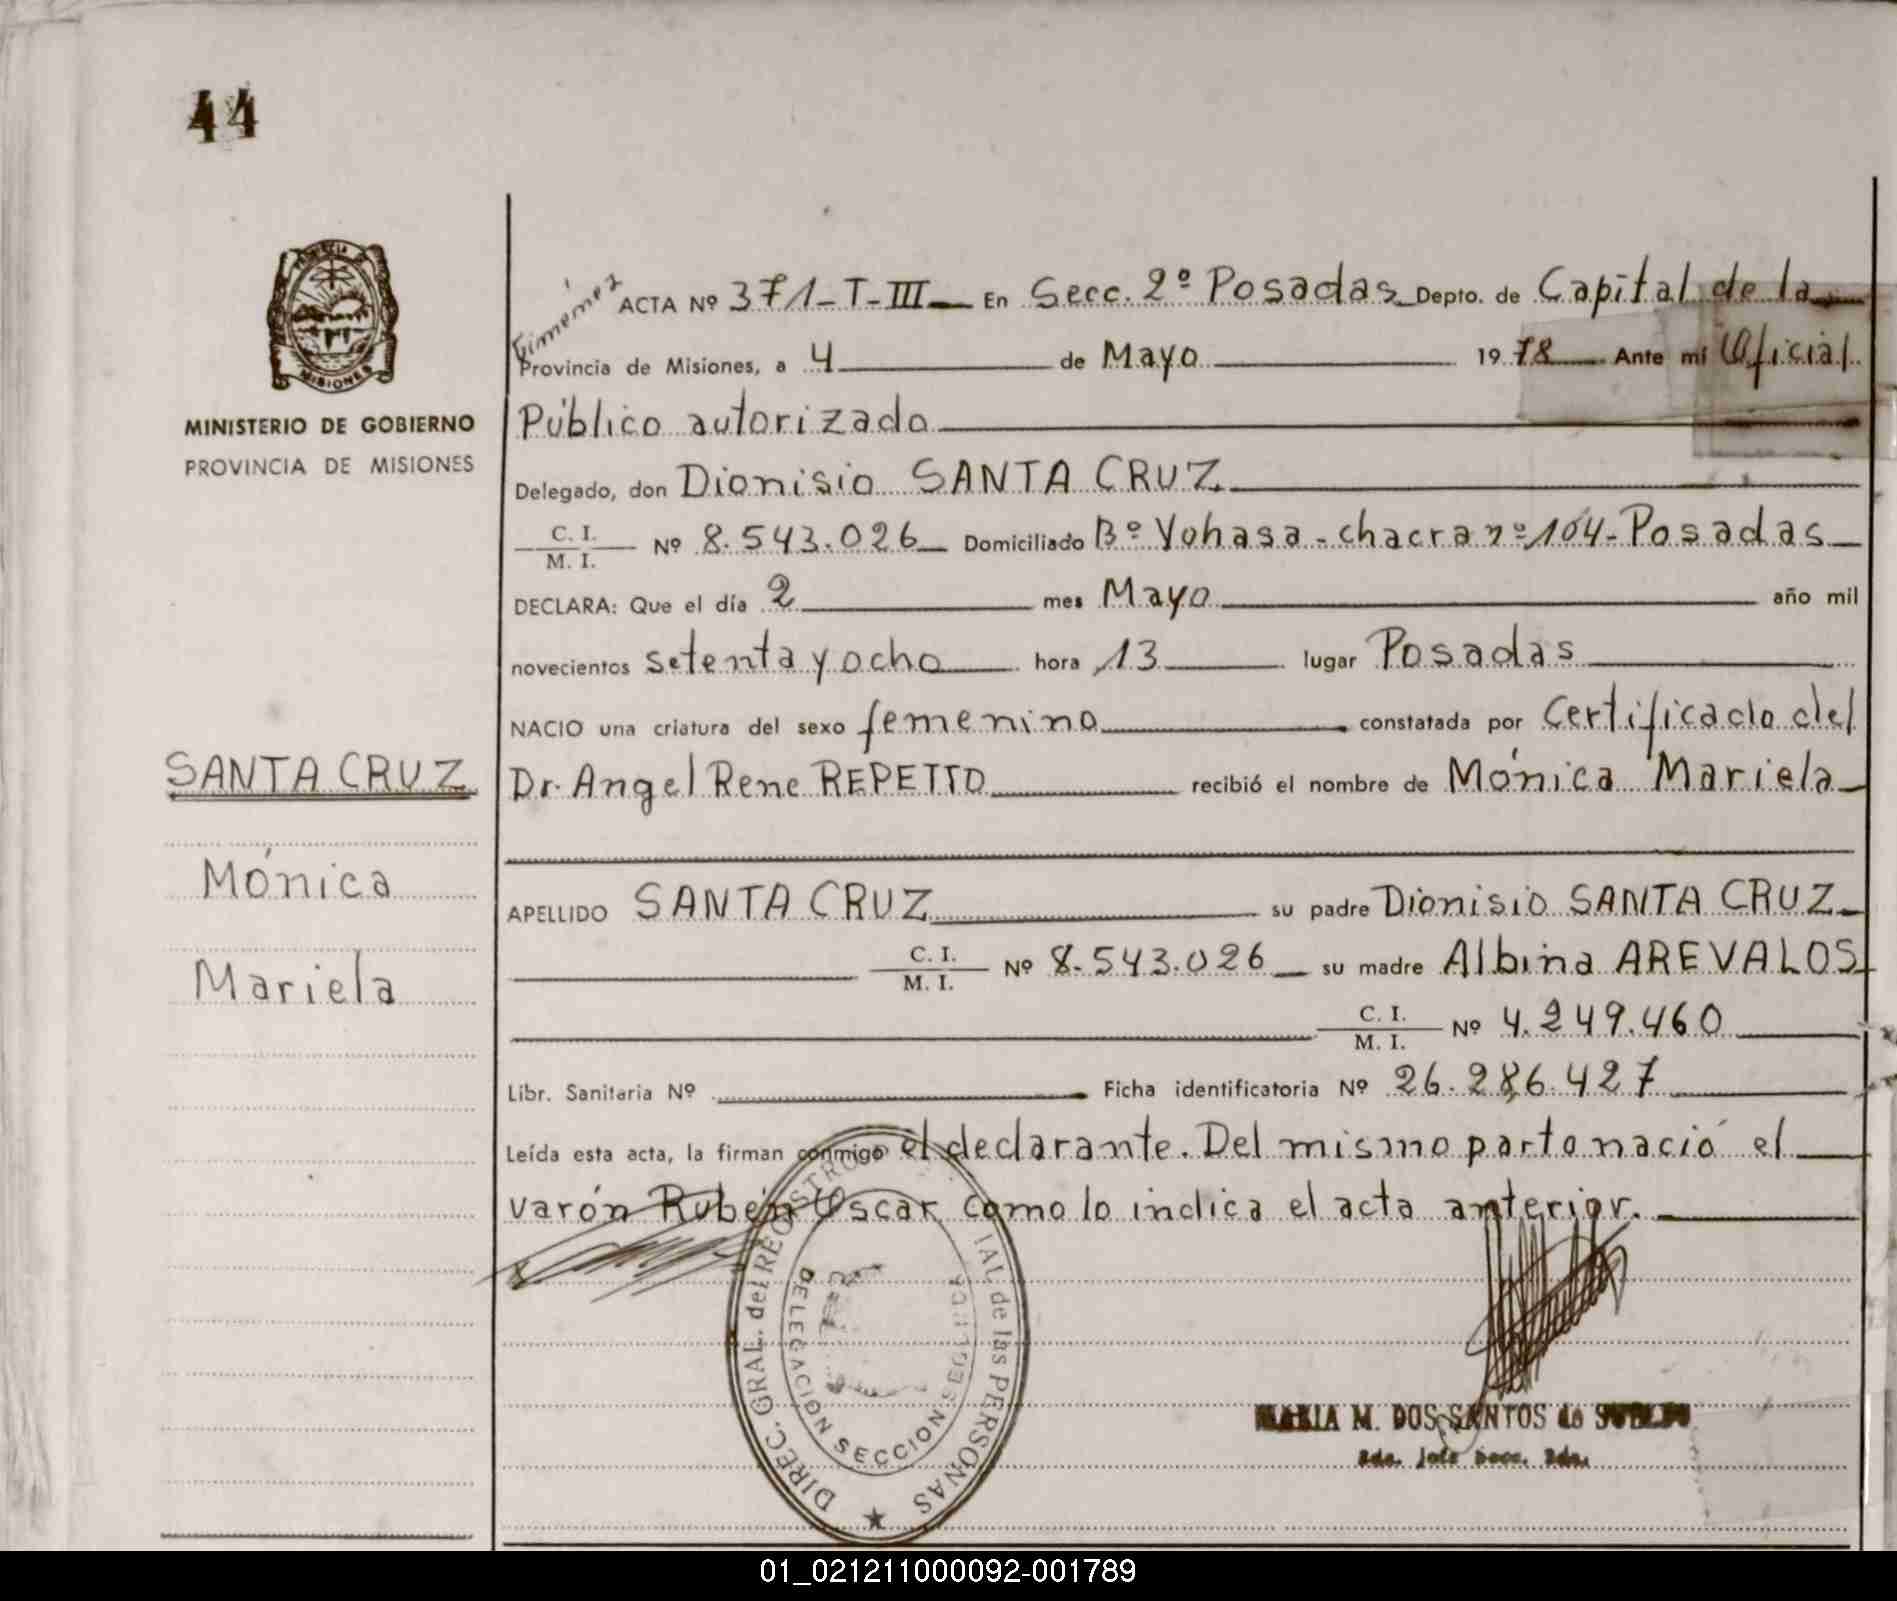 44
MINISTERIO DE GOBIERNO
PROVINCIA DE MISIONES
MISIONES
SANTA CRUZ
Mónica
Mariela
ACTA Nº 371-T-III- En Secc. 2º Posadas Depto. de Capital de la
Provincia de Misiones, a 4 de Mayo 1978 Ante mi Oficial
Público autorizado
Delegado, don Dionisio SANTA CRUZ
C. I.
M. I. Nº 8.543.026 Domiciliado Bº Yohasa - chacra nº 104 - Posadas
DECLARA: Que el día 2 mes Mayo año mil
novecientos setenta y ocho hora 13 lugar Posadas
NACIO una criatura del sexo femenino constatada por Certificado del
Dr. Angel Rene REPETTO recibió el nombre de Mónica Mariela
APELLIDO SANTA CRUZ su padre Dionisio SANTA CRUZ
C. I.
M. I. Nº 8.543.026 su madre Albina AREVALOS
C. I.
M. I. Nº 4.249.460
Libr. Sanitaria Nº Ficha identificatoria Nº 26.286.427
Leída esta acta, la firman conmigo el declarante. Del mismo parto nació el
varón Rubén Oscar como lo indica el acta anterior.
DIREC. GRAL. del REGISTRO de las PERSONAS
DELEGACION SECCION SEGUNDA
MARIA M. DOS SANTOS de
01_021211000092-001789